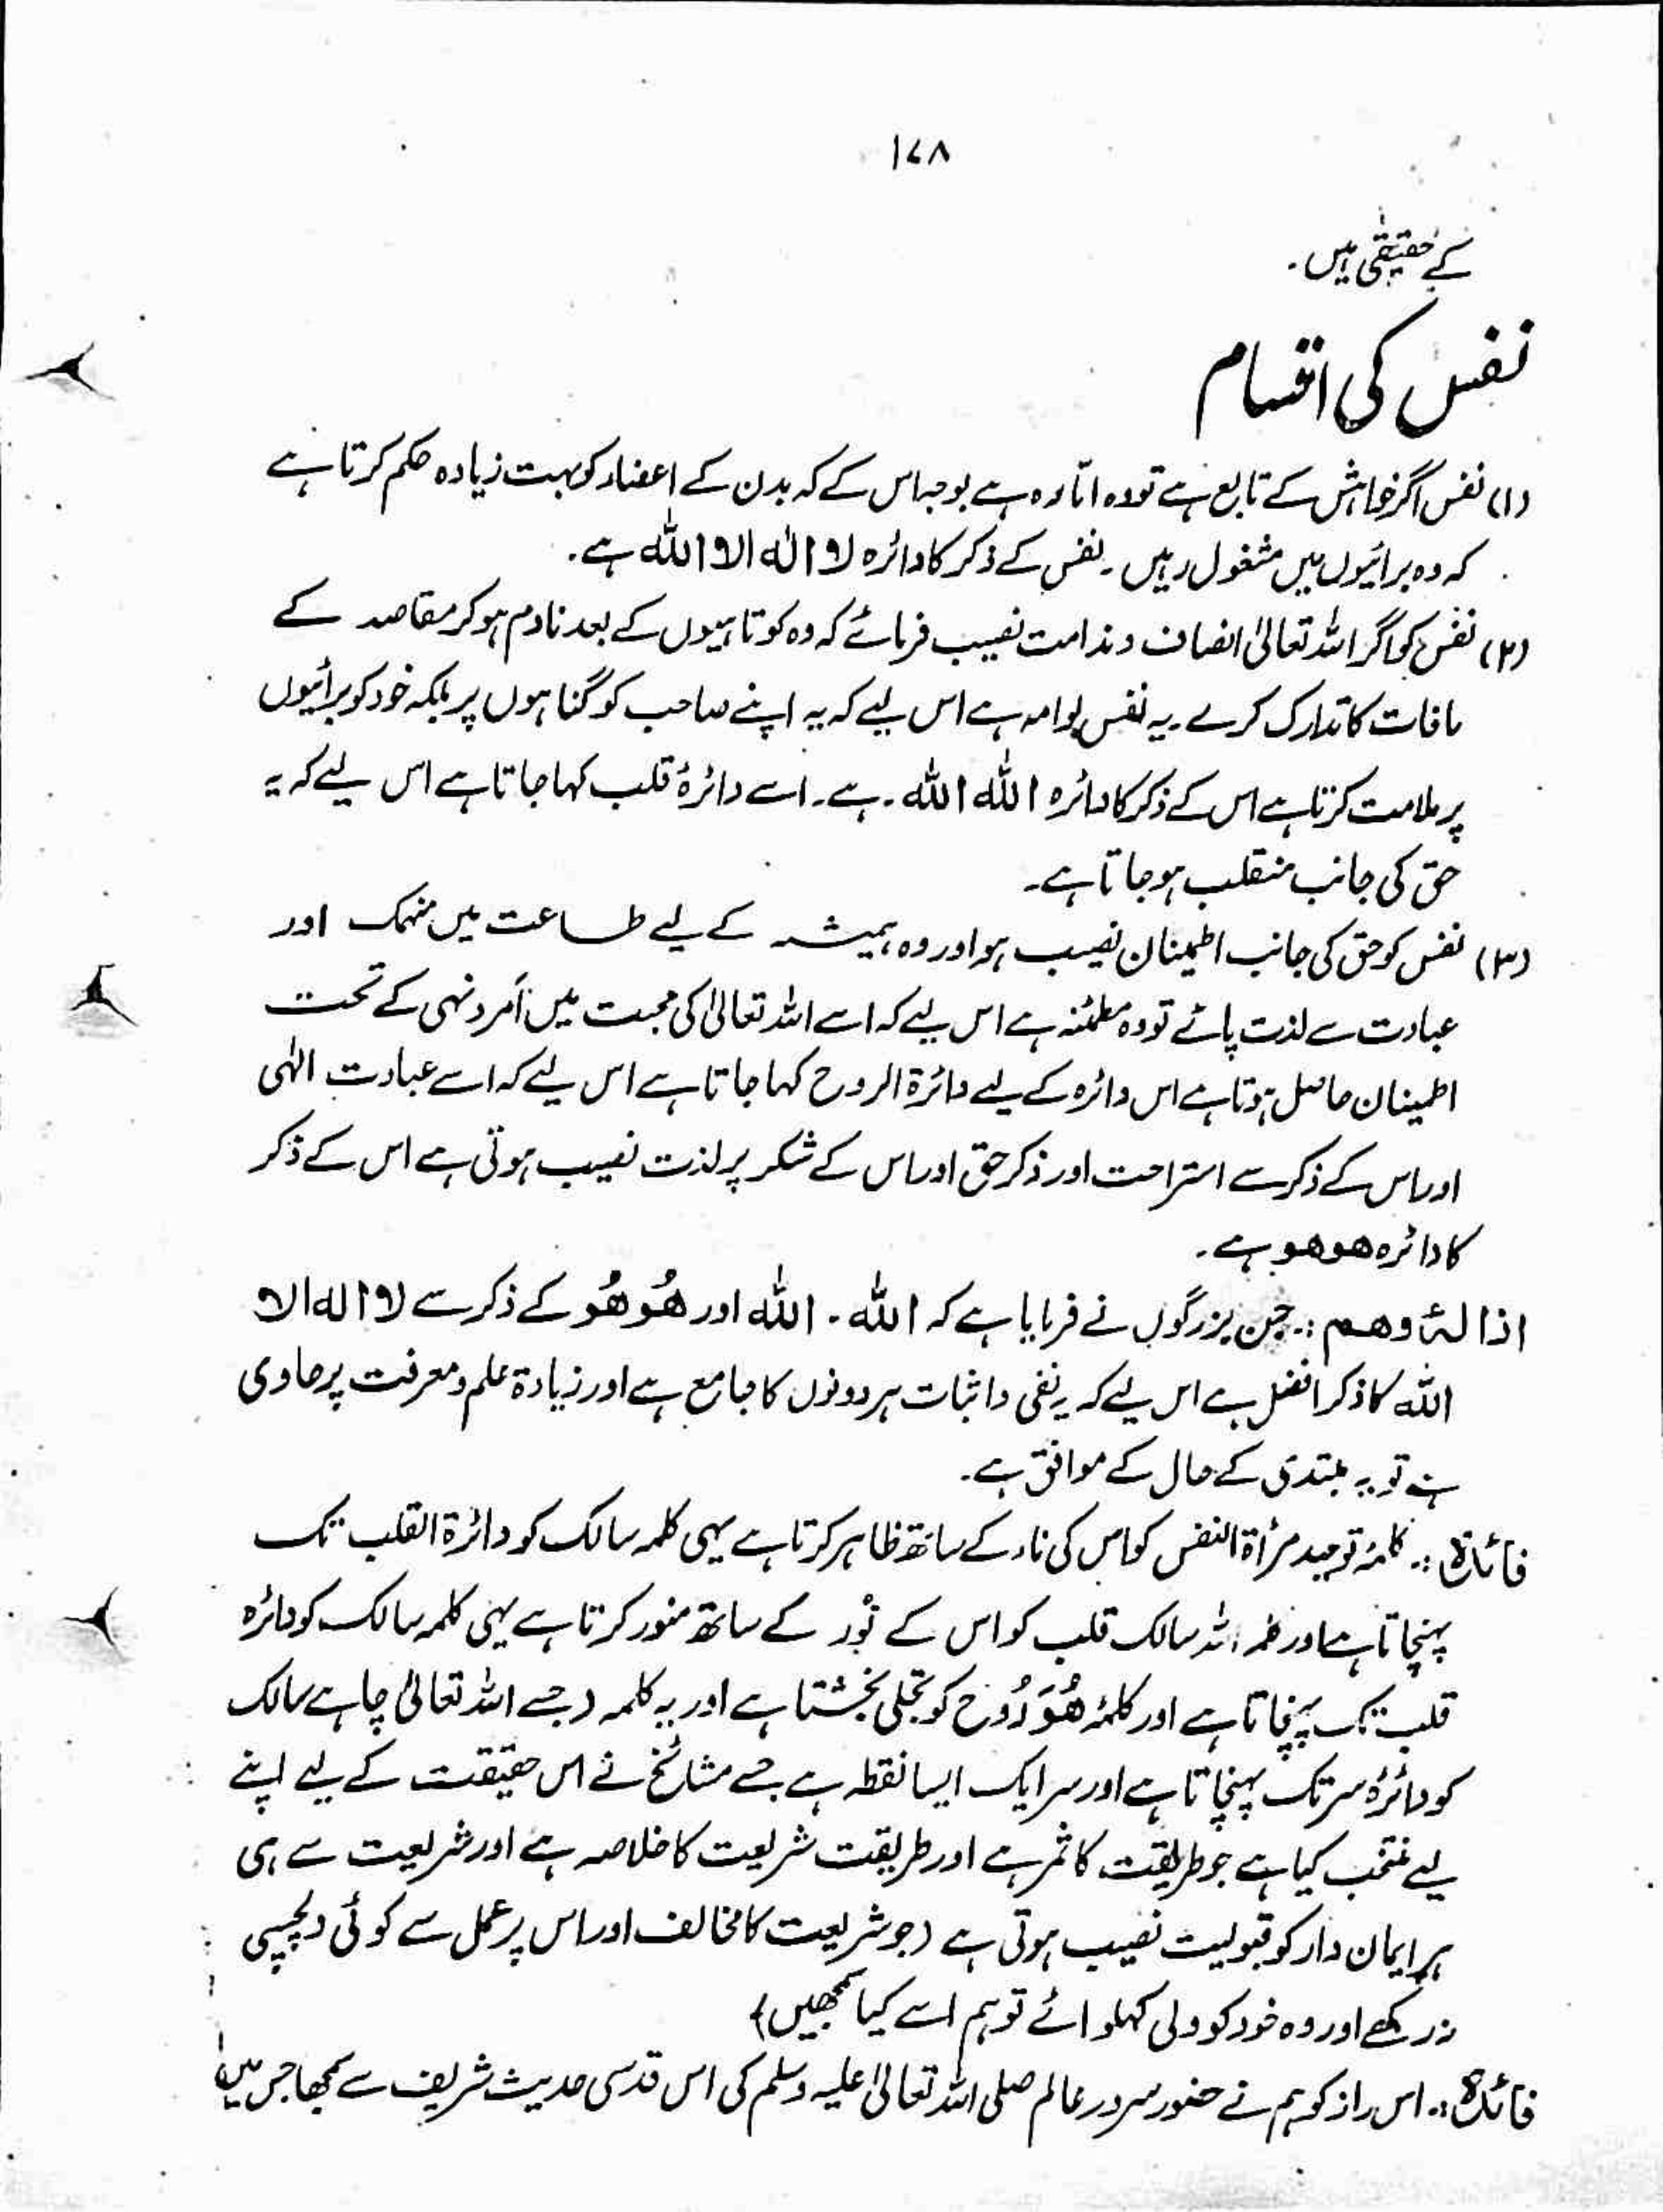 ۱۷۸
کے حقیقی ہیں۔
نفس کی اقسام
(۱) نفس اگر خواہش کے تابع ہے تو وہ امّارہ ہے بوجہ اس کے کہ بدن کے اعضاء کو بہت زیادہ حکم کرتا ہے
کہ وہ برائیوں میں مشغول رہیں۔ نفس کے ذکر کا دائرہ لا الٰہ الا اللّٰہ ہے۔
(۲) نفس کو اگر اللہ تعالیٰ انصاف و ندامت نصیب فرمائے کہ وہ کوتاہیوں کے بعد نادم ہو کر مقاصد کے
مافات کا تدارک کرے۔ یہ نفس لوامہ ہے اس لیے کہ یہ اپنے صاحب کو گناہوں پر بلکہ خود کو برائیوں
پر ملامت کرتا ہے اس کے ذکر کا دائرہ اللّٰہ اللّٰہ۔ ہے۔ اسے دائرۂ قلب کہا جاتا ہے اس لیے کہ یہ
حق کی جانب منقلب ہو جاتا ہے۔
(۳) نفس کو حق کی جانب اطمینان نصیب ہو اور وہ ہمیشہ کے لیے طاعت میں منہمک اور
عبادت سے لذت پائے تو وہ مطمئنہ ہے اس لیے کہ اسے اللہ تعالیٰ کی محبت میں اَمر و نہی کے تحت
اطمینان حاصل ہوتا ہے اس دائرہ کے لیے دائرۃ الروح کہا جاتا ہے اس لیے کہ اسے عبادت الٰہی
اور اس کے ذکر سے استراحت اور ذکر حق اور اس کے شکر پر لذت نصیب ہوتی ہے اس کے ذکر
کا دائرہ ھو ھو ہے۔
ازالۂ وھم :۔ جن بزرگوں نے فرمایا ہے کہ اللّٰہ۔ اللّٰہ اور ھُو ھُو کے ذکر سے لا الٰہ الا
اللّٰہ کا ذکر افضل ہے اس لیے کہ یہ نفی و اثبات ہر دونوں کا جامع ہے اور زیادۃ علم و معرفت پر حاوی
ہے تو یہ مبتدی کے حال کے موافق ہے۔
فائدہ :۔ کلمۂ توحید مرأۃ النفس کو اس کی نار کے ساتھ ظاہر کرتا ہے یہی کلمہ سالک کو دائرۃ القلب تک
پہنچاتا ہے اور کلمہ اللہ سالک قلب کو اس کے نُور کے ساتھ منور کرتا ہے یہی کلمہ سالک کو دائرہ
قلب تک پہنچاتا ہے اور کلمۂ ھُوَ رُوح کو تجلی بخشتا ہے اور یہ کلمہ (جسے اللہ تعالیٰ چاہے سالک
کو دائرۂ سر تک پہنچاتا ہے اور سر ایک ایسا نقطہ ہے جسے مشائخ نے اس حقیقت کے لیے اپنے
لیے منتخب کیا ہے جو طریقت کا ثمر ہے اور طریقت شریعت کا خلاصہ ہے اور شریعت سے ہی
ہر ایمان دار کو قبولیت نصیب ہوتی ہے (جو شریعت کا مخالف اور اس پر عمل سے کوئی دلچسپی
نہ رکھے اور وہ خود کو ولی کہلوائے تو ہم اسے کیا سمجھیں)
فائدہ :۔ اس راز کو ہم نے حضور سرور عالم صلی اللہ تعالیٰ علیہ وسلم کی اس قدسی حدیث شریف سے سمجھا جس میں